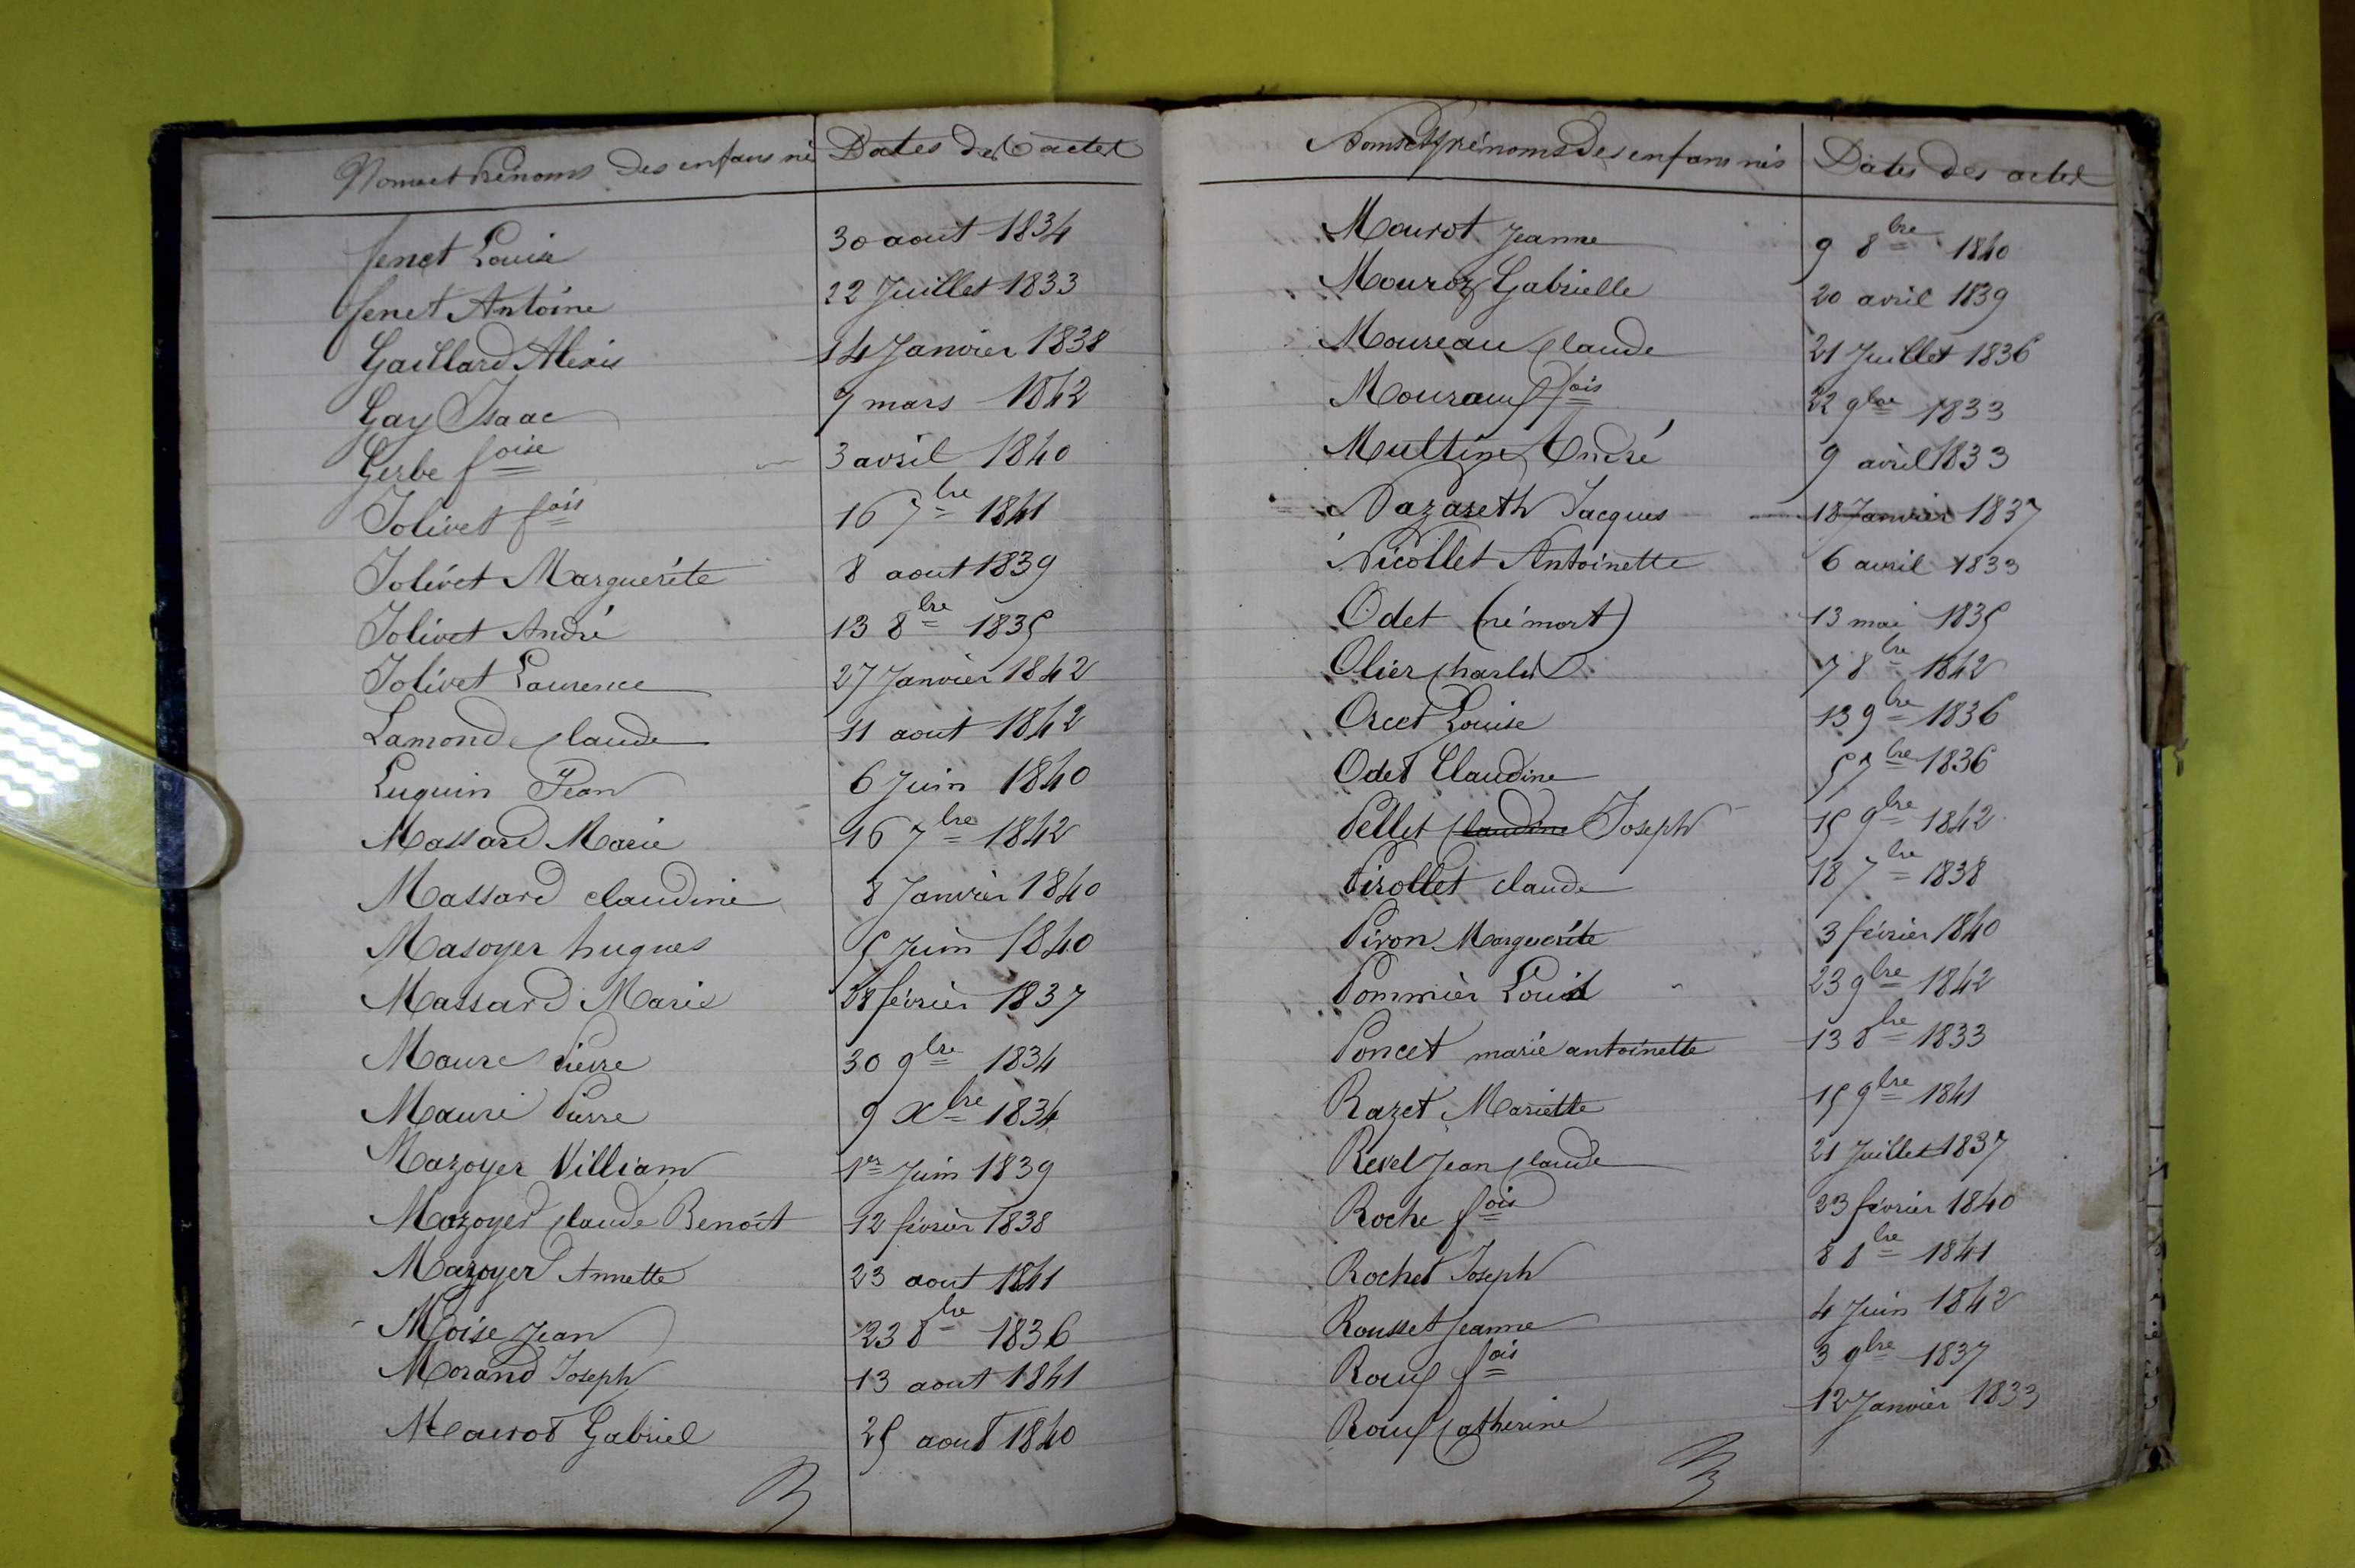 Noms et Prénoms des enfans né Dates des actes
fenet Louise 30 aout 1834
fenet Antoine 22 Juillet 1833
Gaillard Alexis 14 Janvier 1838
Gay Isaac 7 mars 1842
Gerbe foise 3 avril 1840
Jolivet fois 16 7bre 1841
Jolivet Marguerite 8 aout 1839
Jolivet André 13 8bre 1835
Jolivet Laurence 27 Janvier 1842
Lamond claude 11 aout 1842
Luquin Jean 6 Juin 1840
Massard Marie 16 7bre 1842
Massard claudine 8 Janvier 1840
Masoyer hugues 5 Juin 1840
Massard Marie 28 février 1837
Maure Pierre 30 9bre 1834
Maure Pierre 9 Xbre 1834
Mazoyer Villiam 1er Juin 1839
Mazoyer claude Benoit 12 février 1838
Mazoyer Annette 23 aout 1841
Moise Jean 23 8bre 1836
Morand Joseph 13 aout 1841
Mourot Gabriel 25 aout 1840
Noms et prénoms des enfans nés Dates des actes
Mourot Jeanne 9 8bre 1840
Mouroz Gabrielle 20 avril 1839
Moureau claude 21 Juillet 1836
Mouraux fois 22 9bre 1833
Multin André 9 avril 1833
Nazareth Jacques 18 Janvier 1837
Nicollet Antoinette 6 avril 1833
Odet (né mort) 13 mai 1835
Olier charles 7 8bre 1842
Orcet Louise 13 9bre 1836
Odet Claudine 5 7bre 1836
Pellet claudine Joseph 15 9bre 1842
Pirollet claude 18 7bre 1838
Piron Marguerite 3 février 1840
Pommier Louis 23 9bre 1842
Poncet marie antoinette 13 8bre 1833
Razet Mariette 15 9bre 1841
Revel Jean claude 21 Juillet 1837
Roche fois 23 février 1840
Rochet Joseph 8 8bre 1841
Rousset Jeanne 4 Juin 1842
Roux fois 3 9bre 1837
Roux Catherine 12 Janvier 1833